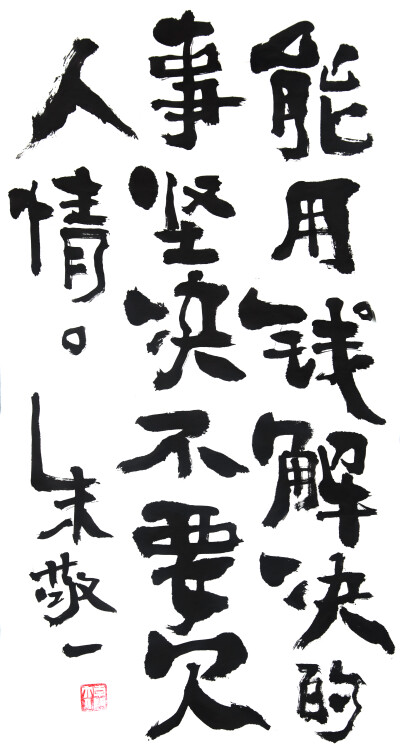 能用钱解决的
事坚决不要欠
人情。朱敬一